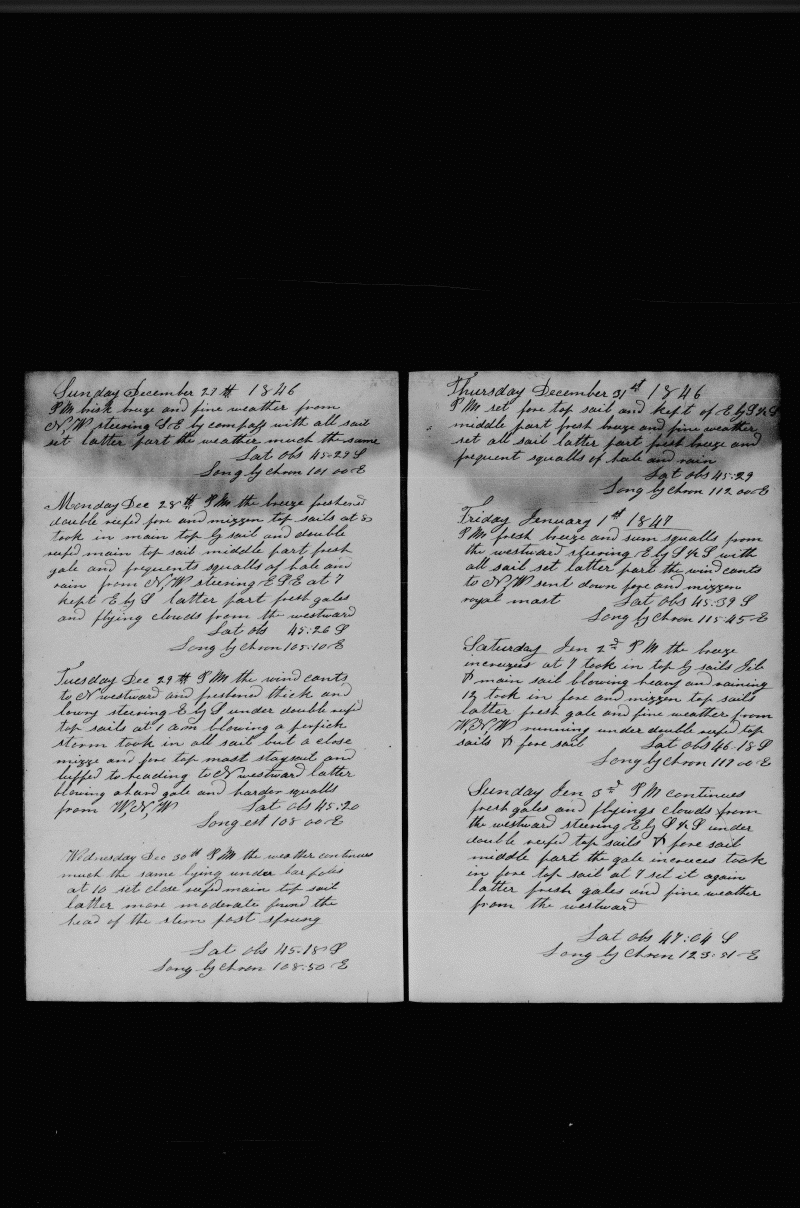 Sunday December 27th 1846
P M brisk breeze and fine weather from
N,W steering S E by compass with all sail
set latter part the weather much the same
Lat Obs 45=29 S
Long by chron 101 00=E
Monday Dec 28th P M the breeze freshened
double reefd fore and mizzen top sails at 8
took in main top G sail and double
reefd main top sail middle part fresh
gale and frequents squalls of hale and
rain from N,W steering E S E at 7
kept E by S latter part fresh gales
and flying clouds from the westward
Lat obs 45=26 S
Long by chron 105=10=E
Tuesday Dec 29th P M the wind cants
to N westward and freshened thick and
lowry steering E by S under double reefd
top sails at 1 am blowing a perfick
storm took in all sail but a close
mizze and fore top mast staysail and
luffed to heading to N westward latter
blowing a hard gale and harder squalls
from W,N,W Lat obs 45=20
Long est 108 00=E
Wednesday Dec 30th P M the weather continues
much the same lying under bar poles
at 10 set close reefd main top sail
latter more moderate found the
head of the stern post sprung
Lat obs 45=18 S
Long by chron 108=50=E
Thursday December 31st 1846
P M set fore top sail and kept of E by S & S
middle part fresh breeze and fine weather
set all sail latter part fresh breeze and
frequent squalls of hale and rain
Lat obs 45=29
Long by chron 112 00=E
Friday Jenuary 1st 1847
P M fresh breeze and sum squalls from
the westward steering E by S & S with
all sail set latter part the wind cants
to N,W sent down fore and mizzen
royal mast Lat obs 45=39 S
Long by chron 115=45=E
Saturday Jen 2nd P M the breeze
increases at 7 took in top G sails Jib
& main sail blowing heavy and raining
12 took in fore and mizzen top sails
latter fresh gale and fine weather from
W,N,W running under double reefd top
sails & fore sail Lat obs 46=18 S
Long by chron 119 00=E
Sunday Jen 3rd P M continues
fresh gales and flyings clouds from
the westward steering E by S & S under
double reefd top sails & fore sail
middle part the gale increces took
in fore top sail at 7 set it again
latter fresh gales and fine weather
from the westward
Lat obs 47=04 S
Long by chron 123=31=E